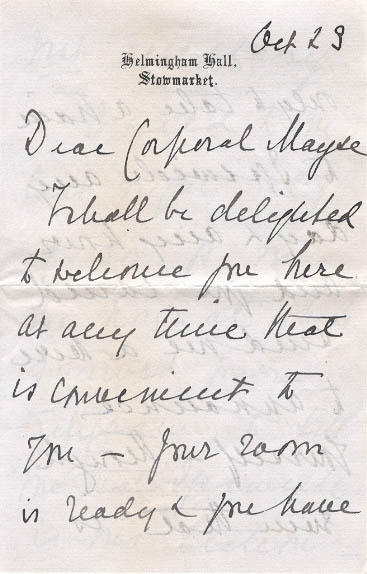 Oct 23
Helmingham Hall,
Stowmarket.
Dear Corporal Mayse
I shall be delighted
to welcome you here
at any time that
is convenient to
you – your room
is ready & you have